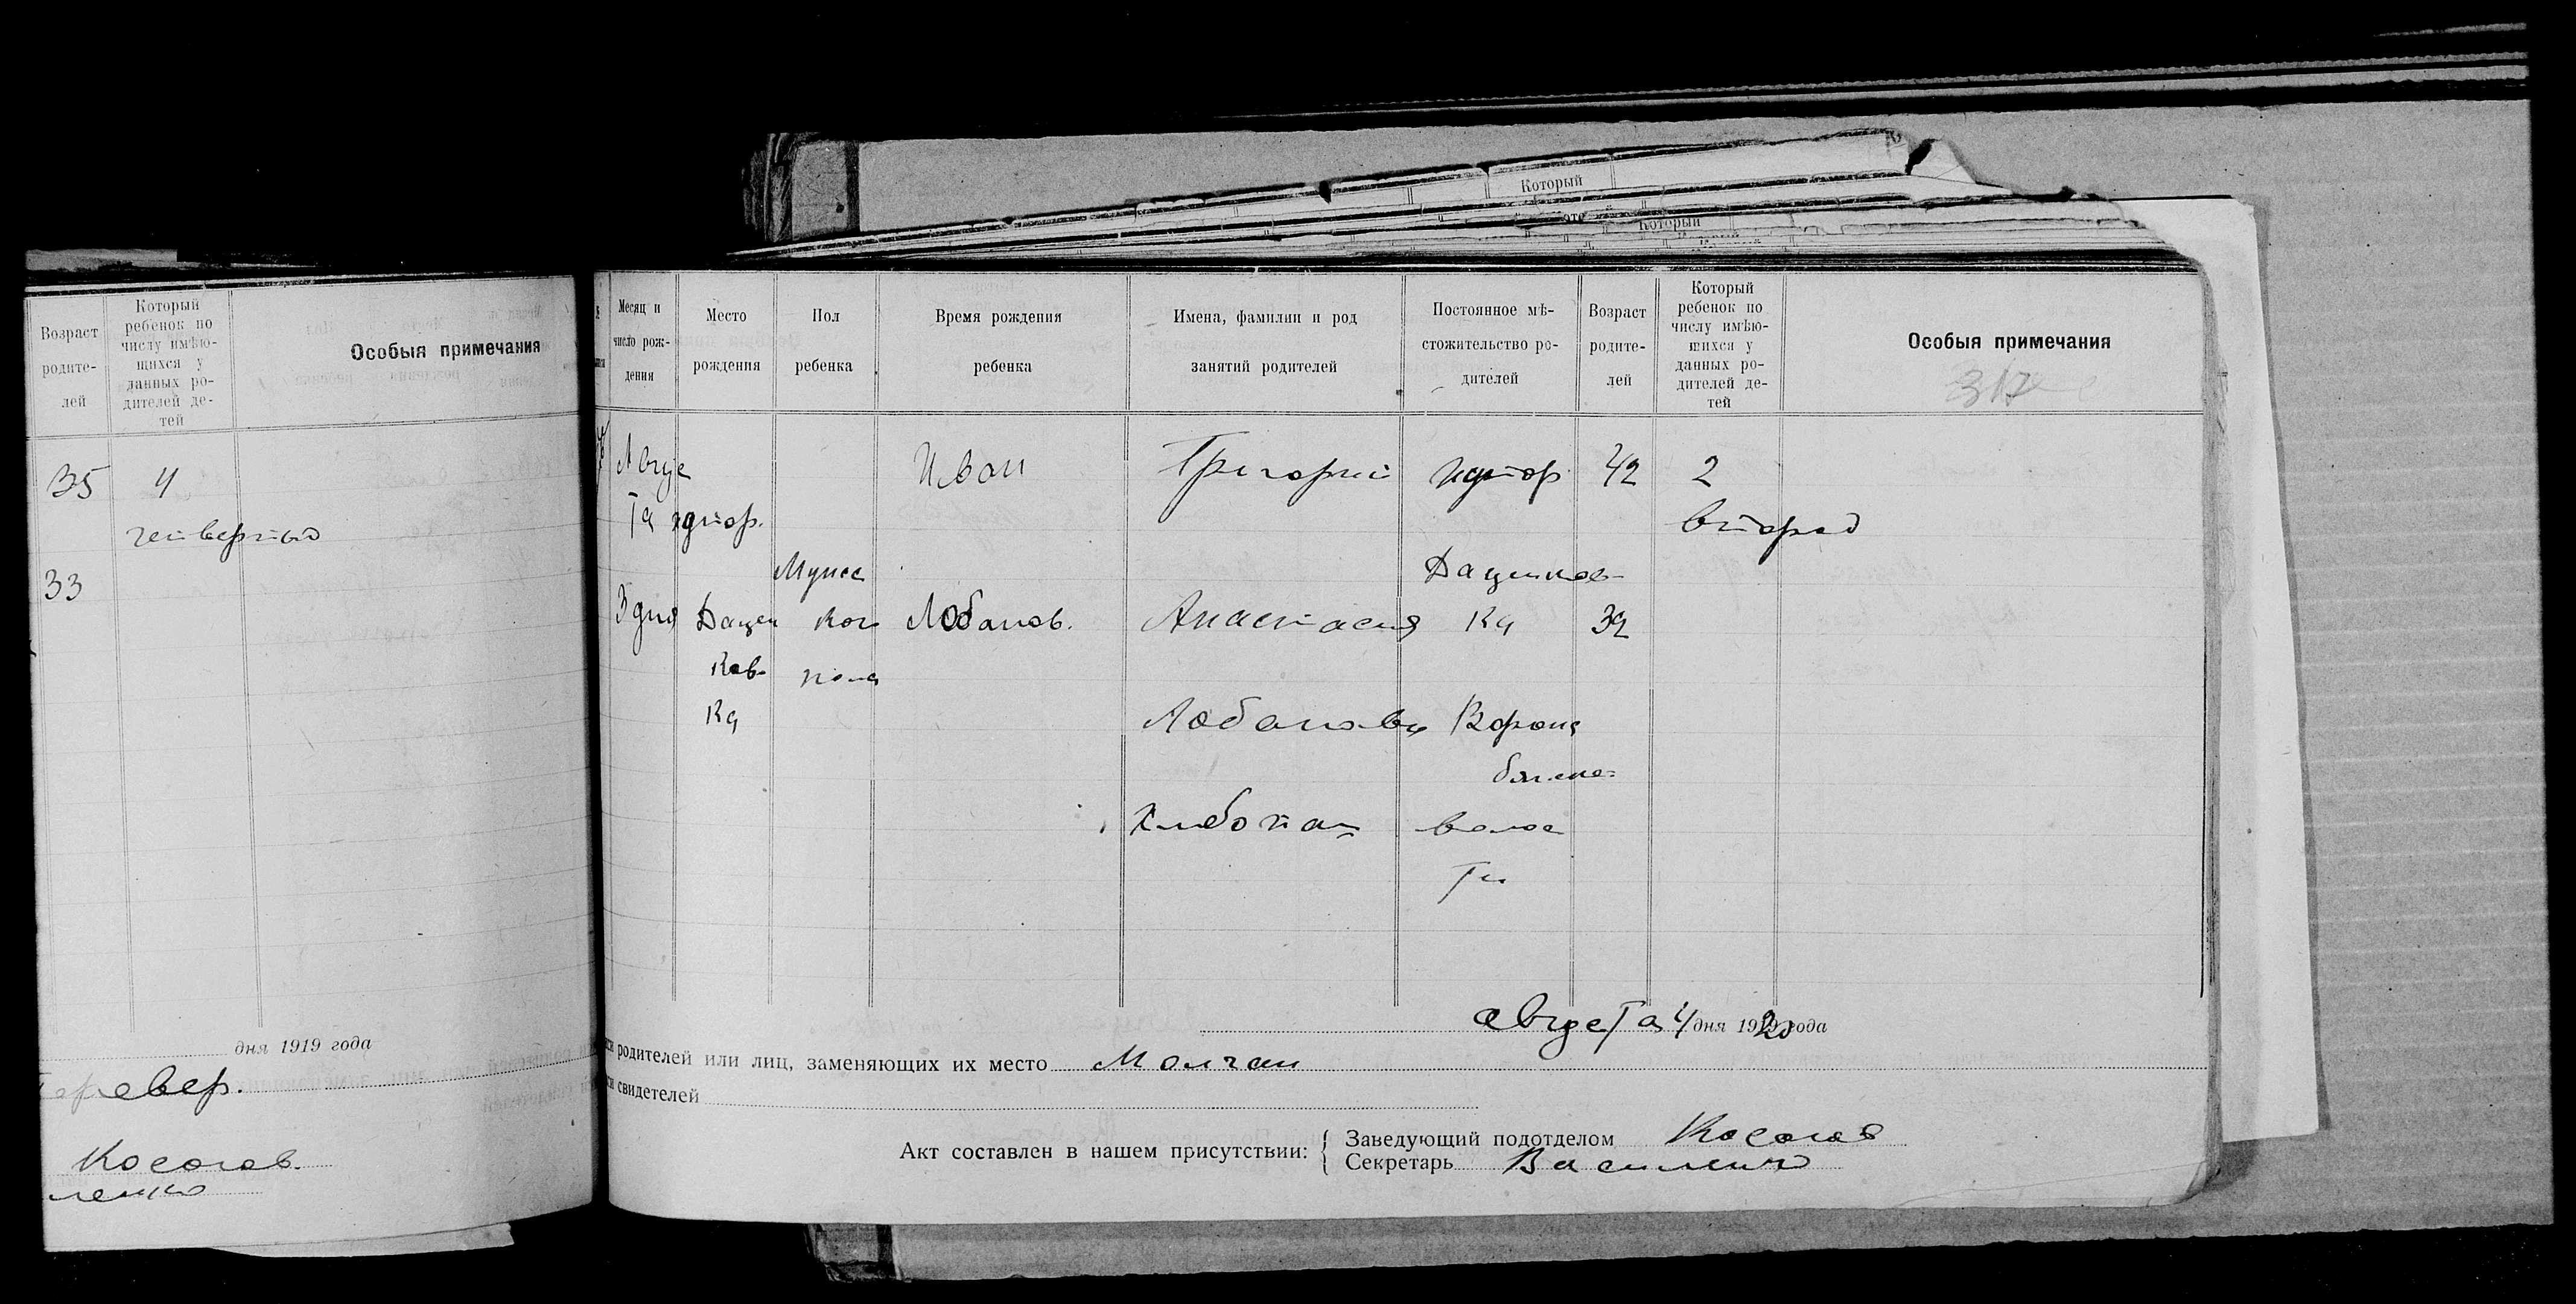 Который
Который
Возраст родите- лей
Который ребенок по числу имѣю- щихся у данных ро- дителей де- тей
Особыя примечания
35 4
четвертый
33
дня 1919 года
Косогов.
Месяц и число рож- дения
Место рождения
Пол ребенка
Время рождения ребенка
Имена, фамилии и род занятий родителей
Постоянное мѣ- стожительство ро- дителей
Возраст родите- лей
Который ребенок по числу имѣю- щихся у данных ро- дителей де- тей
Особыя примечания
317
Авгус Иван Григорий хутор 42 2
та хутор. второй
Мужс Дацинков-
3 дня Дацен ког Лобанов. Анастасия ка 39
ков- пола
ка Лобановы
Хлебопаш волос
ти
августа 4 дня 1920 года
родителей или лиц, заменяющих их место Молчан
свидетелей
Акт составлен в нашем присутствии: Заведующий подотделом Косогов
Секретарь